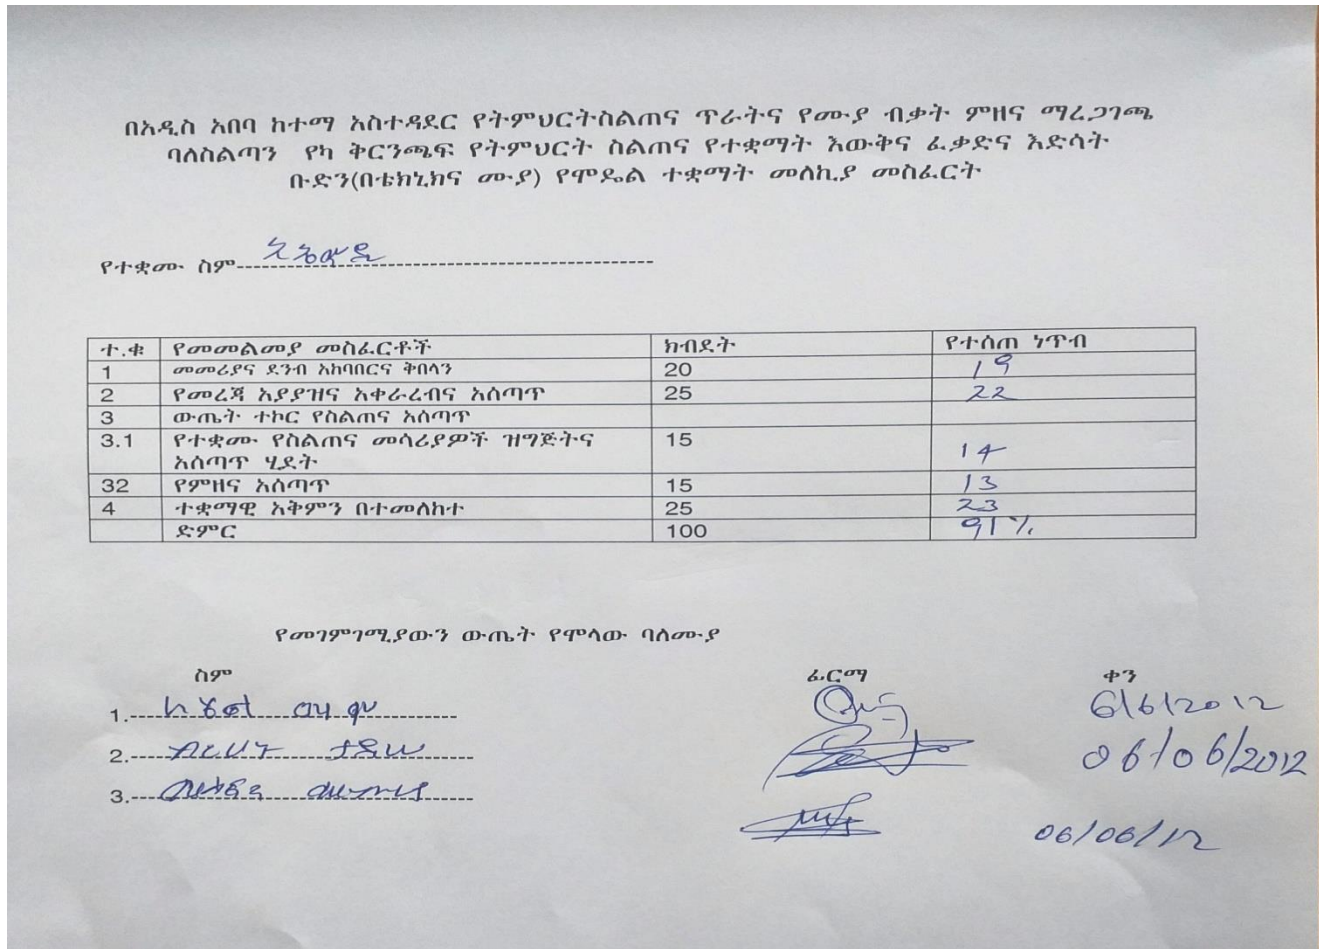 በአዲስ አበባ ከተማ አስተዳደር የትምህርትስልጠና ጥራትና የሙያ ብቃት ምዘና ማረጋገጫ
ባለስልጣን የካ ቅርንጫፍ የትምህርት ስልጠና የተቋማት እውቅና ፈቃድና እድሳት
ቡድን(በቴክኒክና ሙያ) የሞዴል ተቋማት መለኪያ መስፈርት
የተቋሙ ስም
ተ.ቁ የመመልመያ መስፈርቶች ክብደት የተሰጠ ነጥብ
1 መመሪያና ደንብ አከባበርና ቅበላን 20 19
2 የመረጃ አያያዝና አቀራረብና አሰጣጥ 25 22
3 ውጤት ተኮር የስልጠና አሰጣጥ
3.1 የተቋሙ የስልጠና መሳሪያዎች ዝግጅትና 15 14
አሰጣጥ ሂደት
32 የምዘና አሰጣጥ 15 13
4 ተቋማዊ አቅምን በተመለከተ 25 23
ድምር 100 91%
የመገምገሚያውን ውጤት የሞላው ባለሙያ
ስም ፊርማ ቀን
1. 6/6/2012
2. 06/06/2012
3. 06/06/12